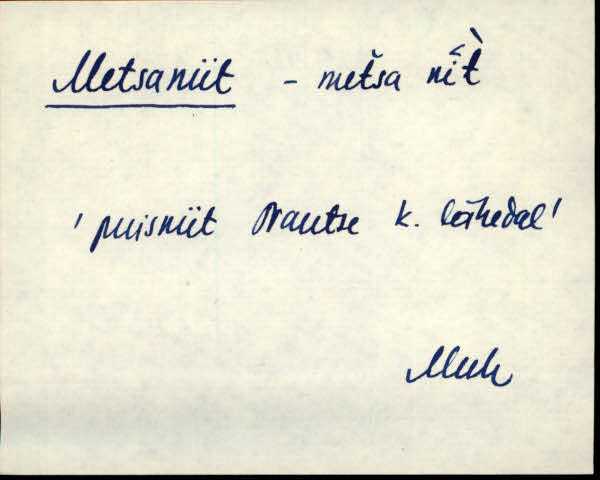 Metsaniit - metša nīt̀
'puisniit Orautse k. lähedal'
Muh